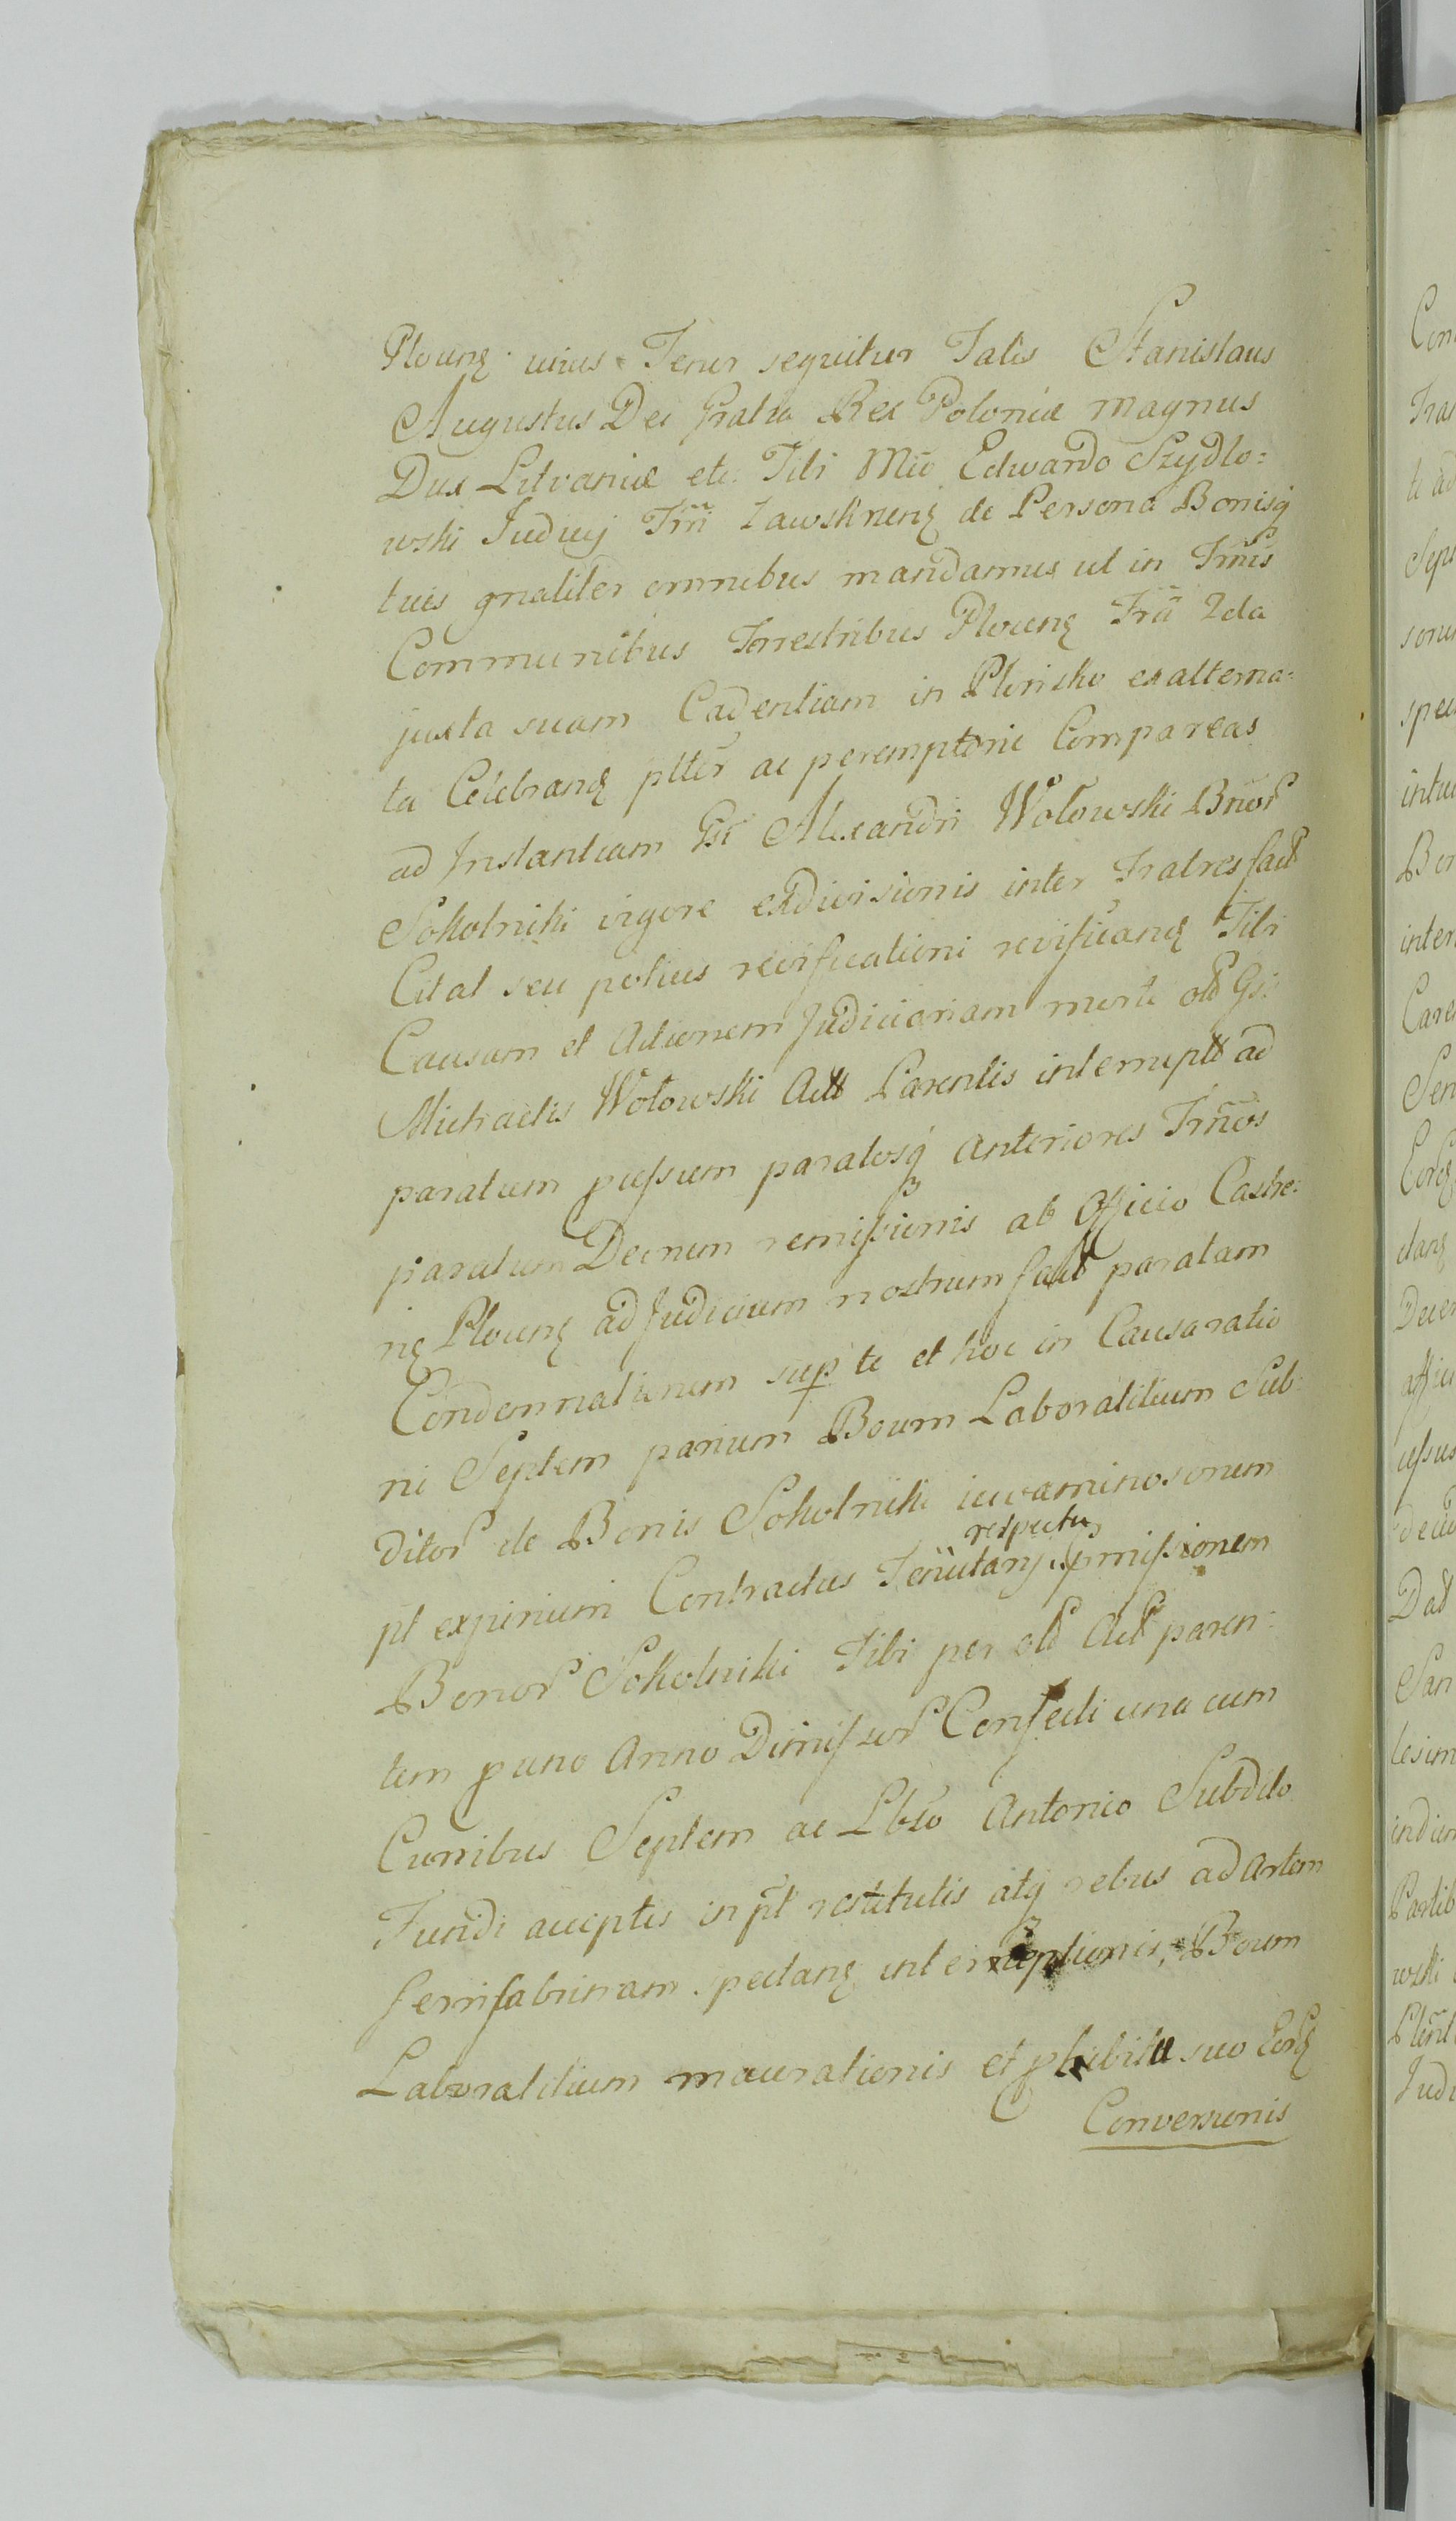 Plocenę uius Tenor sequitur Talis Stanislaus
Augustus Dei Gratia Rex Poloniæ magnus
Dux Litvaniæ etc. Tibi Mco Edwardo Szydło=
wski Judicij Trrī Zawskrnenę de Persona Bonisq
tuis gnaliter omnibus mandamus ut in Trmis
Communibus Terrestribus Plocenę Fria 2da
juxta suam Cadentiam in Plonsko exalterna=
ta Celebranę plter ac peremptorie Compareas
ad Instantiam Gsi Alexandri Wołowski Bnor
Sokolniki vigore exdivisionis inter Fratres fact
Citat seu potius reivificationi revificanę Tibi
Causam et Actionem Judiciariam morte olt Gsi
Michaelis Wołowski Act Parentis interrupt ad
paratum pcessum paratosq anteriores Trmos
paratum Decnem remissionis ab Officio Castre=
nę Plocenę ad Judicium nostrum fact paratam
Condemnationem sup te et hoc in Causa ratio
ni Septem parium Boum Laboratilium Sub
ditor de Bonis Sokolniki iuvaminosorum
respectu
pt expirium Contractus Tenutarij pmissionem
Bonor Sokolniki Tibi per olt Act paren=
tem p uno Anno Dimissor Confecti una cum
Curribus Septem ac Lbso Antonio Subdito
Fundi acceptis in pt restitutis atq rebus ad Artem
ferrifabrinam pectanę interceptionis Boum
Laboratilium macerationis et p libitu suo Eorę
Conversionis